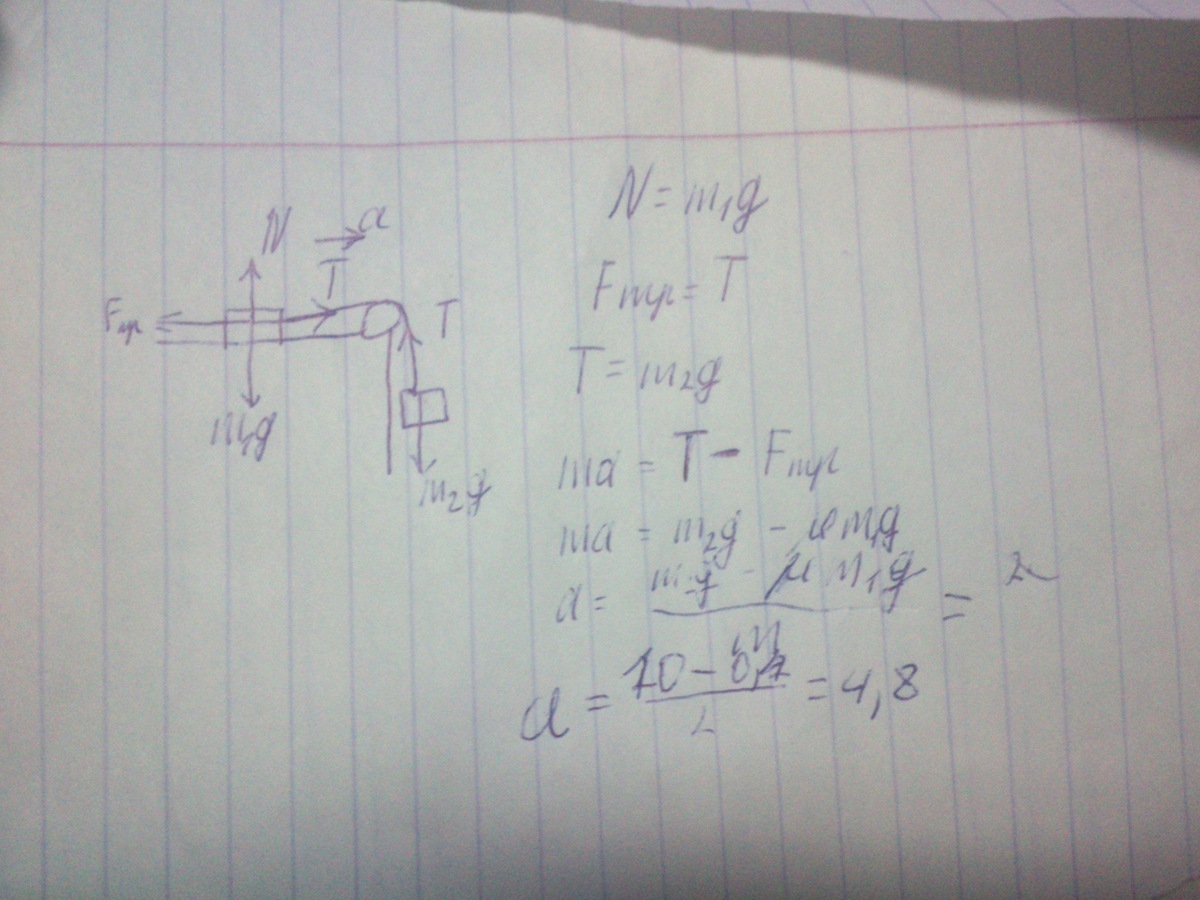 N
a
T
Fтр
T
m₁g
m₂g
N = m₁g
Fтр = T
T = m₂g
ma = T - Fтр
ma = m₂g - μm₁g
a = m₂g - μ m₁g / m =
a = 10 - 0,4 / 2 = 4,8